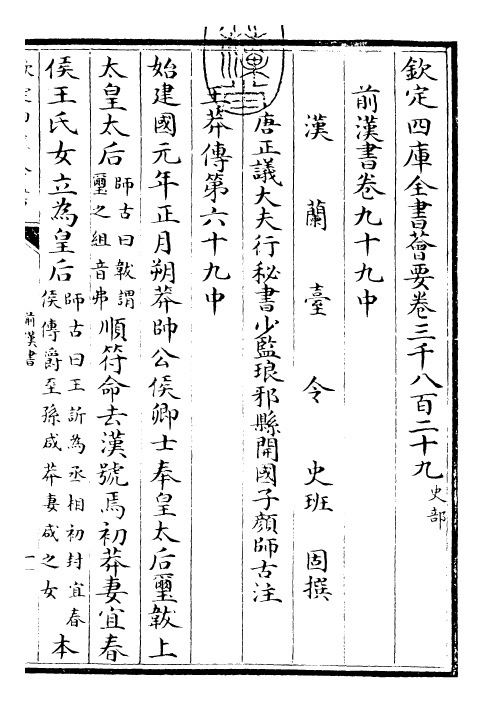 欽定四庫全書薈要卷三千八百二十九 史部
前漢書卷九十九中
漢蘭臺令史班固撰
唐正議大夫行秘書少監琅邪縣開國子顏師古注
王莽傳第六十九中
始建國元年正月朔莽帥公侯卿士奉皇太后璽韍上
太皇太后 師古曰韍謂璽之組音弗 順符命去漢號焉初莽妻宜春
侯王氏女立為皇后 師古曰王訢為丞相初封宜春侯傳爵至孫咸莽妻咸之女 本
前漢書
一